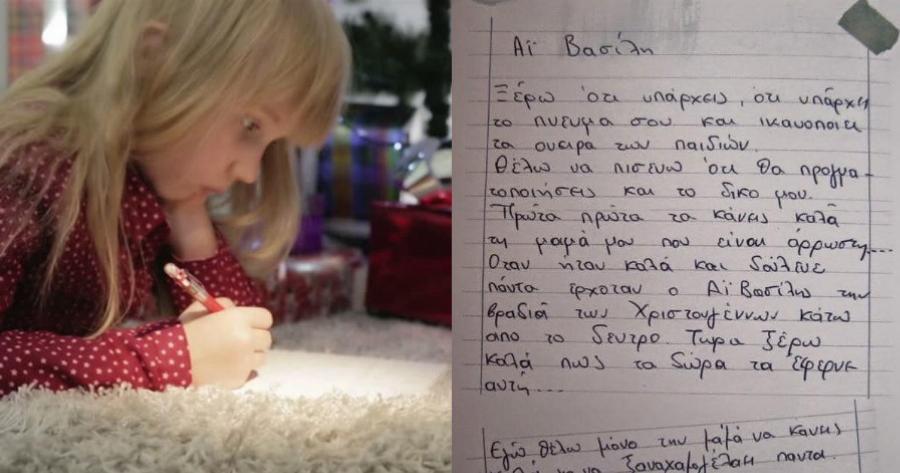 Αϊ Βασίλη
Ξέρω ότι υπάρχεις, ότι υπάρχει
το πνευμα σου και ικανοποιει
τα ονειρα των παιδιών.
Θέλω να πιστευω ότι θα πραγμα-
τοποιήσεις και το δικο μου.
Πρώτα πρώτα τα κάνεις καλά
τη μαμά μου που είναι άρρωστη...
Οταν ήταν καλά και δούλευε
πάντα έρχοταν ο Αϊ Βασίλης την
βραδιά των Χριστουγέννων κάτω
απο το δεντρο. Τωρα ξέρω
καλά πως τα δώρα τα έφερνε
αυτη...
Εγώ θέλω μόνο την μάμά να κανεις
να ξαναχαμογέλαει παντα.